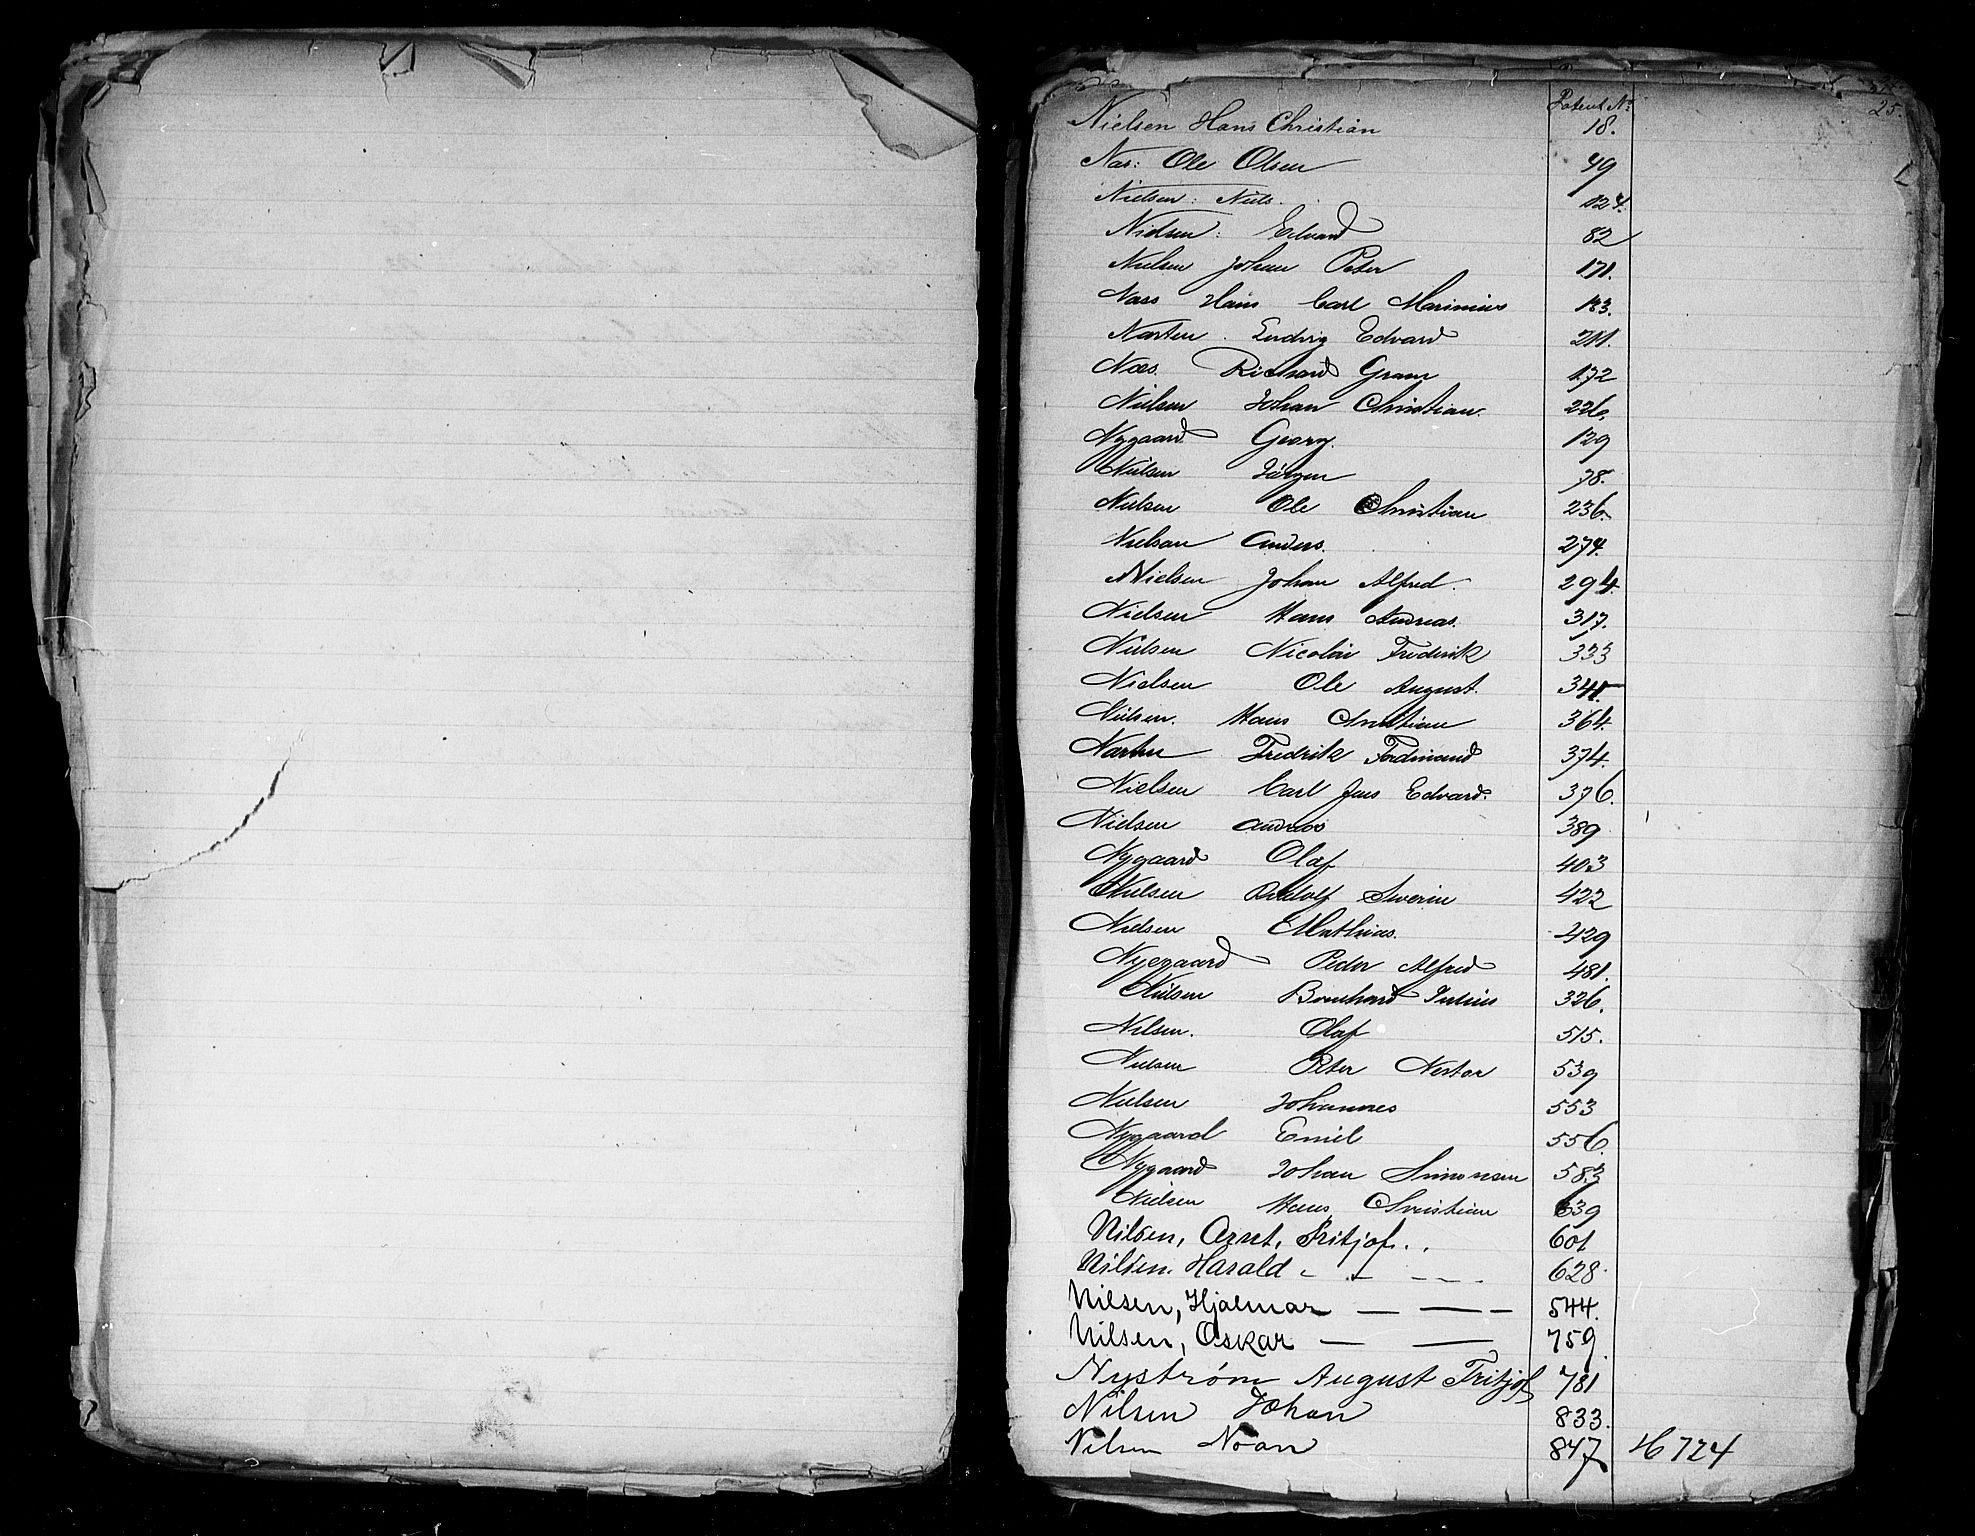 Patent No
25.
Nielsen Hans Christian 18.
Nas: Ole Olsen 49
Nielsen: Niels. 124.
Nielsen: Edvard 82
Nielsen Johan Peter 171.
Nass Hans Carl Marinius 183.
Narten Ludvig Edvard 211.
Næs. Richard Gram 172
Nielsen Johan Christian. 226.
Nygaard Georg. 129
Nielsen Jörgen 78.
Nielsen Ole Christian 236.
Nielsen Anders. 274.
Nielsen Johan Alfred. 294.
Nielsen Hans Andreas. 317.
Nielsen Nicolai Frederik 333
Nielsen Ole August. 345
Nielsen. Hans Christian 364.
Narten Fredrik Ferdinand 374.
Nielsen Carl Jens Edvard. 376.
Nielsen Andreas 389
Nygaard Olaf 403
Nielsen Rudolf Severin 422
Nielsen Mathias. 429
Nyegaard Peder Alfred 481.
Nielsen Bernhard Julius 326.
Nilsen. Olaf 515.
Nielsen Peter Nestor 539
Nielsen Johannes 553
Nygaard Emil 556.
Nygaard Johan Simonsen 583
Nielsen Hans Christian 639
Nilsen, Arnt, Fritjof.. 601
Nilsen. Harald - - - - - 628.
Nilsen, Hjalmar — — - 544.
Nilsen, Oskar — — 759.
Nystrøm August Fritjof 781
Nilsen Johan 833.
Nilsen Noan 847 H 724